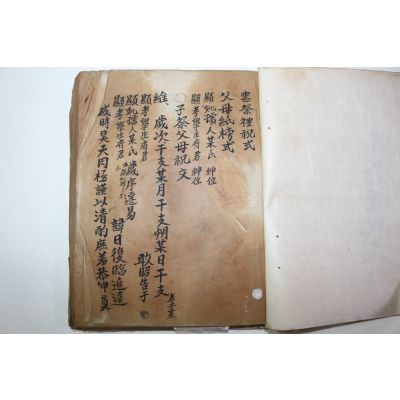 喪祭禮祝式
父母紙榜式
顯妣孺人某氏 神位
顯考學生府君 神位
子祭父母祝文
維歲次干支某月干支朔某日干支
孝子某
敢昭告于
顯考學生府君
顯妣孺人某氏 歲序遷易
諱日復臨追遠
感時昊天罔極謹以清酌庶羞恭伸奠